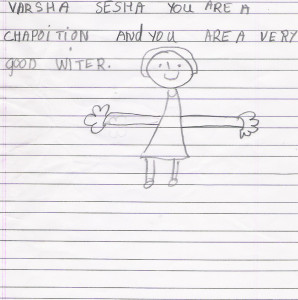 VARSHA SESHA YOU ARE A
CHAPOITION AND YOU ARE A VERY
GOOD WITER.